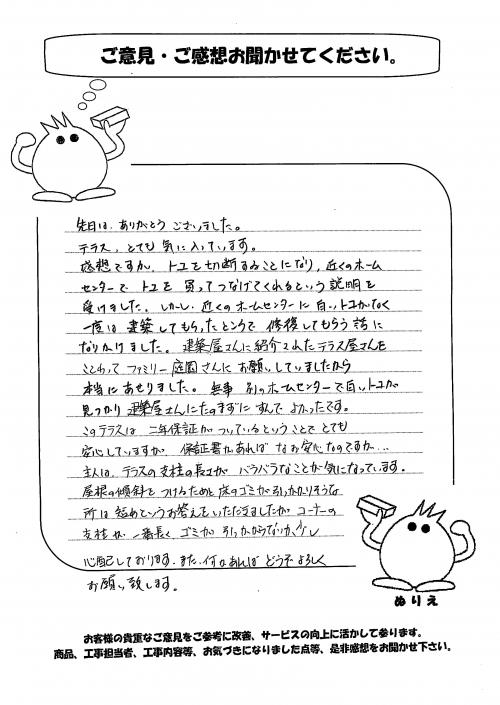 ご意見・ご感想お聞かせてください。
先日は、ありがとうございました。
テラス、とても気に入っています。
感想ですが、トユを切断することになり、近くのホーム
センターでトユを買ってつなげてくれるという説明を
受けました。しかし、近くのホームセンターに白いトユがなく
一度は建築してもらったところで修復してもらう話に
なりかけました。建築屋さんに紹介されたテラス屋さんを
ことわってファミリー庭園さんにお願いしていましたから
本当にあせりました。無事別のホームセンターで白いトユが
見つかり建築屋さんにたのまずにすんでよかったです。
このテラスは二年保証がついているということでとても
安心していますが、保証書があればなお安心なのですが…
主人は、テラスの支柱の長さがバラバラなことが気になっています。
屋根の傾斜をつけるためと床のゴミが引っかかりそうな
所は短めというお答えをいただきましたがコーナーの
支柱が一番長くゴミが引っかからないか少し
心配しております。また、何かあればどうぞよろしく
お願い致します。
ぬりえ
お客様の貴重なご意見をご参考に改善、サービスの向上に活かして参ります。
商品、工事担当者、工事内容等、お気づきになりました点等、是非感想をお聞かせ下さい。